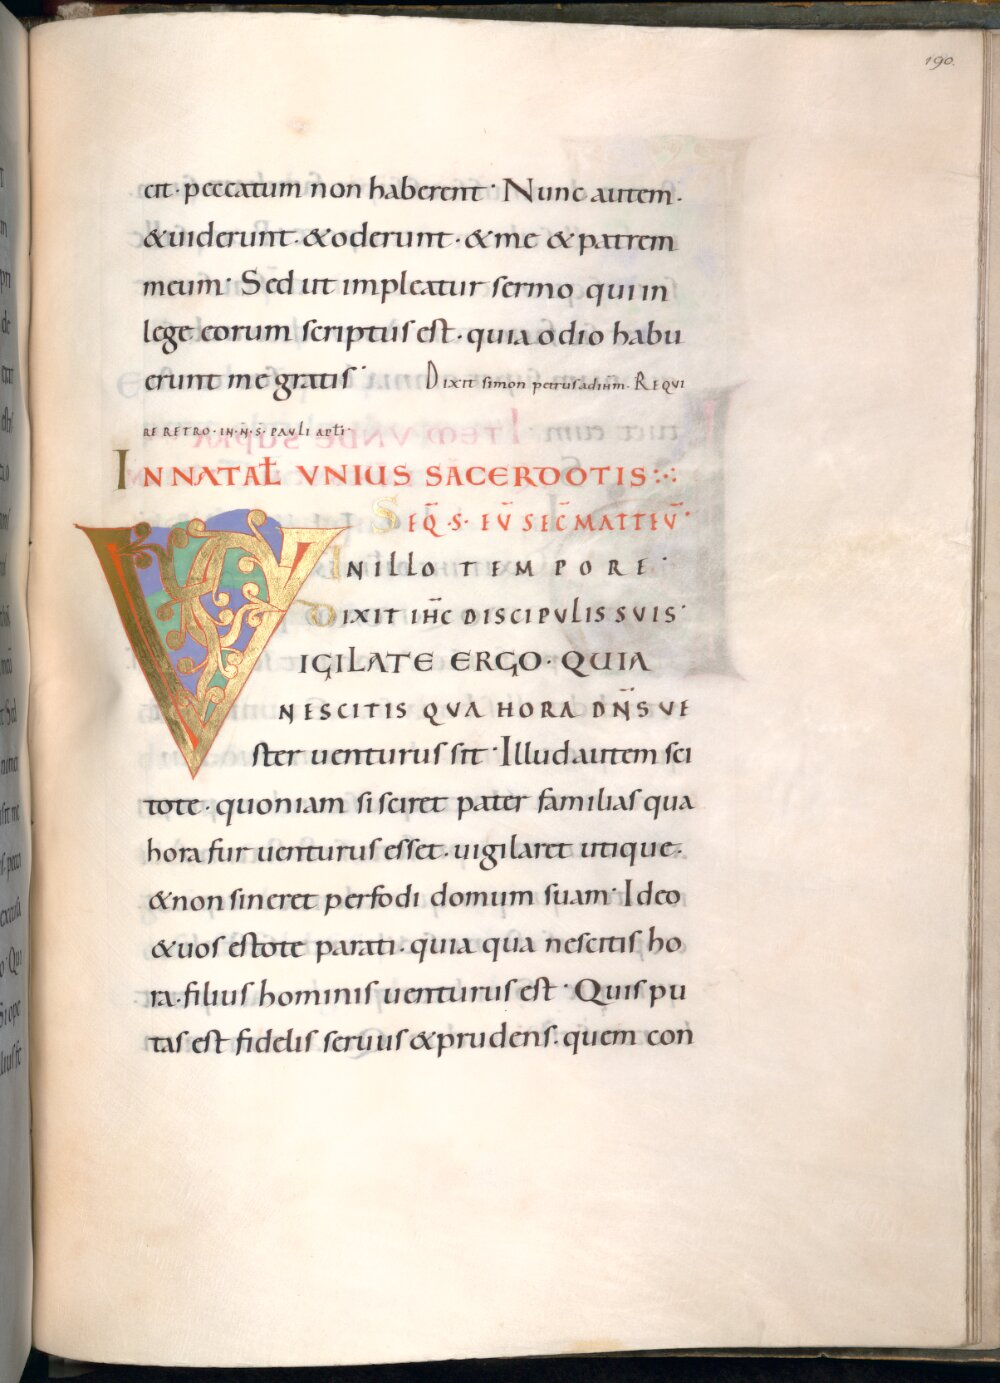 190.
cit· peccatum non haberent· Nunc autem·
&uiderunt·&oderunt·&me &patrem
meum· Sed ut impleatur sermo qui in
lege eorum scriptus est· quia odio habu
erunt me gratis· Dixit simon petrus ad ihm· REQUI
RE RETRO·IN·N̄·S̄· PAVLI apłi·
IN NATAŁ VNIUS SACERDOTIS
SEQ̄·S· EV̄ SEC̄ MATTEV̄·
IN ILLO TEMPORE·
DIXIT IHC̄ DISCIPVLIS SVIS·
VIGILATE ERGO· QUIA
NESCITIS QVA HORA DN̄S VE
ster uenturus sit· Illud autem sci
tote· quoniam si sciret pater familias qua
hora fur uenturus esset· uigilaret utique·
&non sineret perfodi domum suam· Ideo
&uos estote parati· quia qua nescitis ho
ra·filius hominis uenturus est· Quis pu
tas est fidelis seruus &prudens· quem con